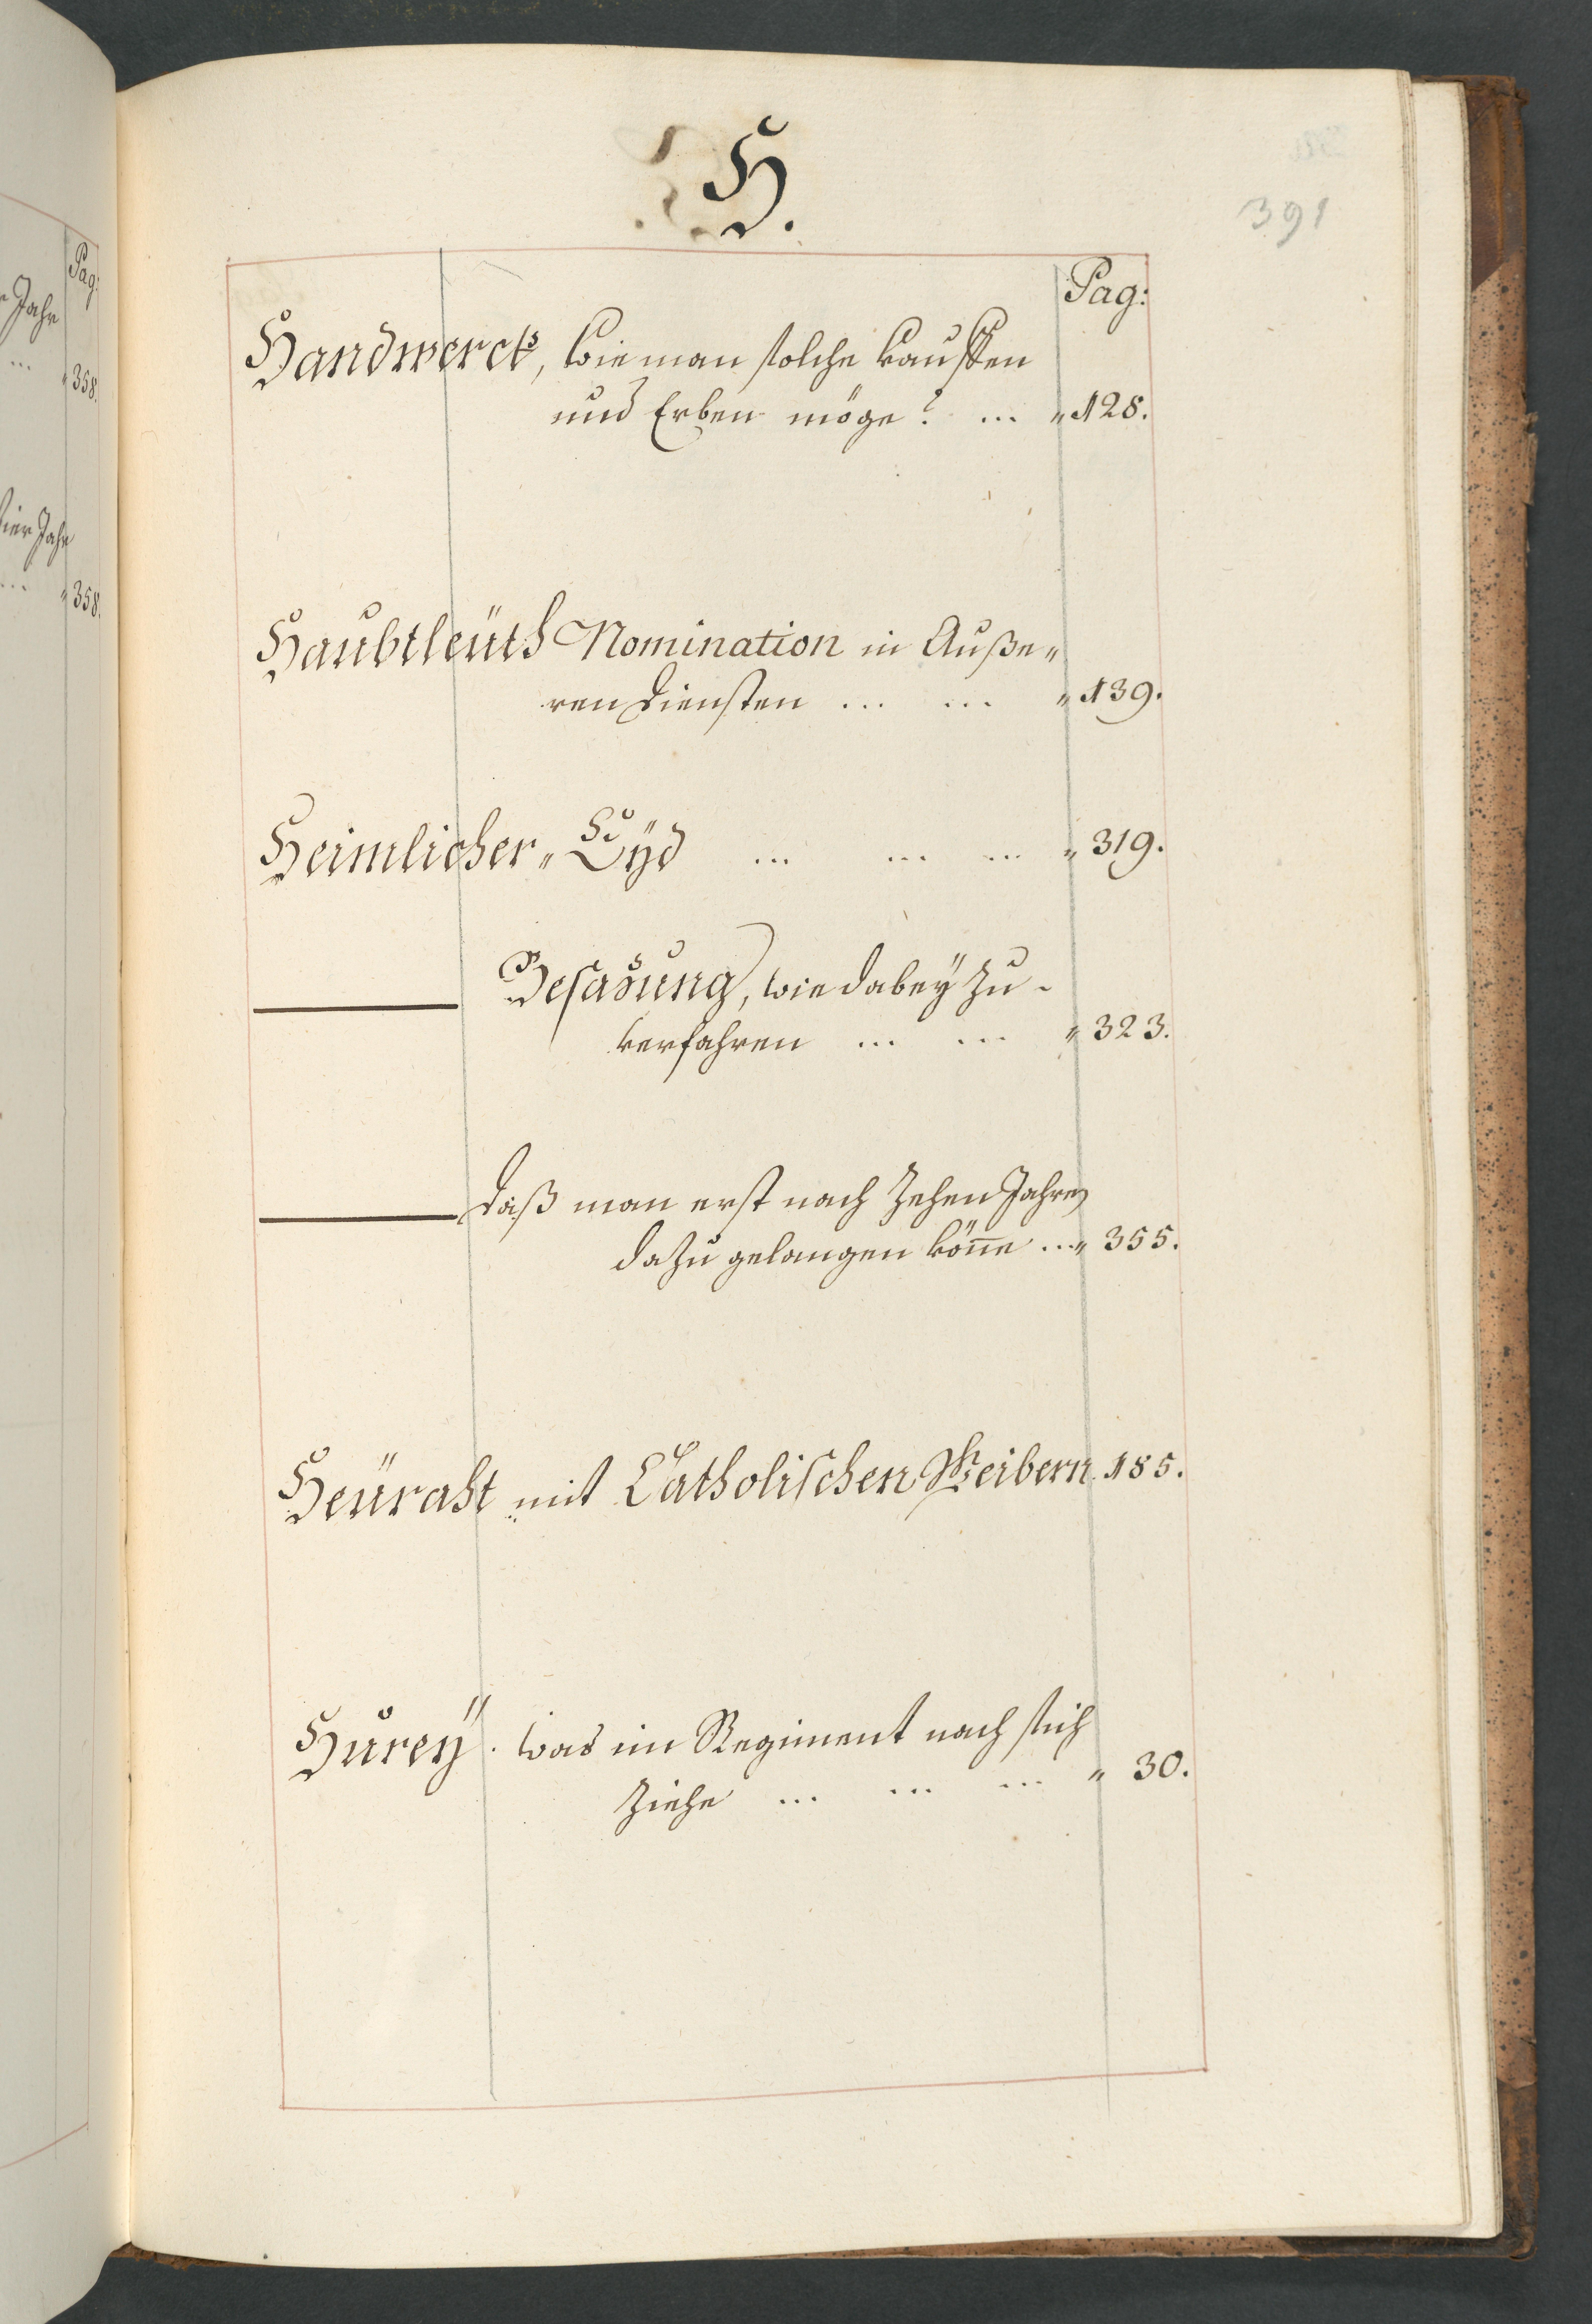 H.
391
Pag:
Handwerck, wie man solche kauffen
und Erben möge? ... " 128.
Haubtleüth Nomination in Auße"
ren Diensten ... ... " 139.
Heimlicher" Eyd ... ... ... " 319.
Besazung, wie dabeÿ zu-
verfahren ... ... " 323.
Daß man erst nach Zehen Jahren
dazu gelangen kön̄e ... " 355.
Heüraht mit Catholischen Weibern. 185.
Hureÿ. was im Regiment nach sich
Ziehe ... ... ... " 30.
Pag:
Jahr
... " 358.
vier Jahr
... " 358.